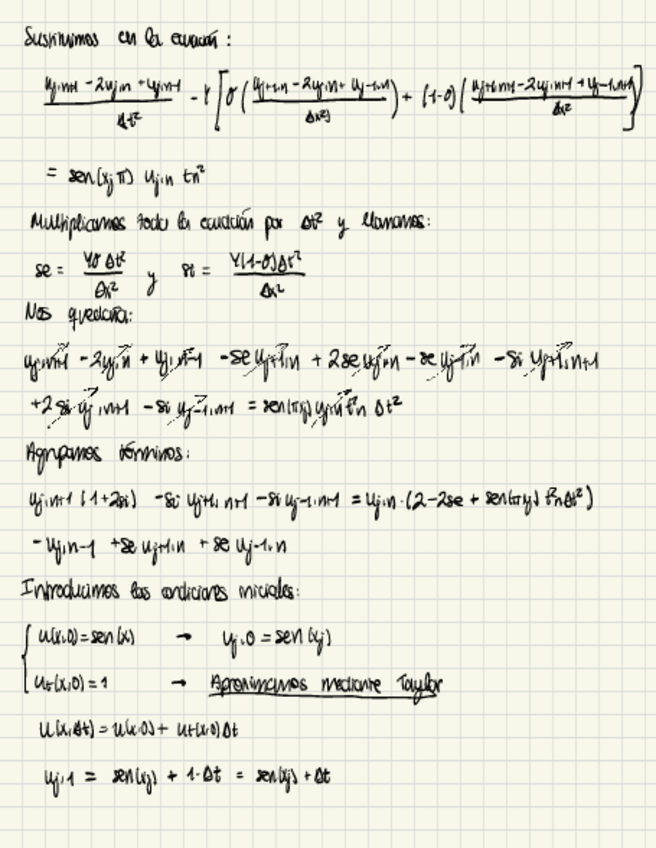 Sustituimos en la ecuación:
(u_{j,n+1} - 2u_{j,n} + u_{j,n-1})/Δt² - γ[σ((u_{j+1,n} - 2u_{j,n} + u_{j-1,n})/Δx²) + (1-σ)((u_{j+1,n+1} - 2u_{j,n+1} + u_{j-1,n+1})/Δx²)]
= sen(x_j π) u_{j,n} tn²
Multiplicamos toda la ecuación por Δt² y llamamos:
se = γσΔt²/Δx² y si = γ(1-σ)Δt²/Δx²
Nos quedaría:
u_{j,n+1} - 2u_{j,n} + u_{j,n-1} - se u_{j+1,n} + 2se u_{j,n} - se u_{j-1,n} - si u_{j+1,n+1}
+2 si u_{j,n+1} - si u_{j-1,n+1} = sen(πxj) u_{j,n} t²n Δt²
Agrupamos términos:
u_{j,n+1} (1+2si) - si u_{j+1,n+1} - si u_{j-1,n+1} = u_{j,n} · (2-2se + sen(πxj) t²nΔt²)
- u_{j,n-1} + se u_{j+1,n} + se u_{j-1,n}
Introducimos las condiciones iniciales:
u(x,0) = sen(x) → u_{j,0} = sen(xj)
u_t(x,0) = 1 → Aproximamos mediante Taylor
u(x,Δt) = u(x,0) + u_t(x,0)Δt
u_{j,1} = sen(xj) + 1·Δt = sen(xj) + Δt